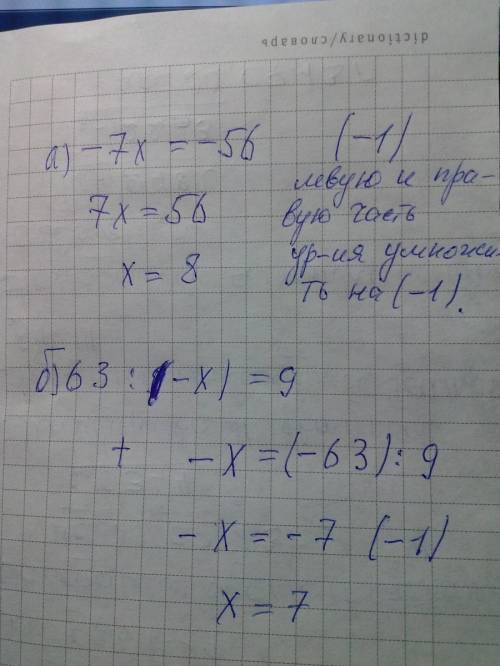 dictionary/словарь
а) -7x = -56 (-1)
левую и пра-
7x = 56 вую часть
ур-ия умножи-
x = 8 ть на (-1).
б) 63 : (-x) = 9
+ -x = (-63) : 9
-x = -7 (-1)
x = 7